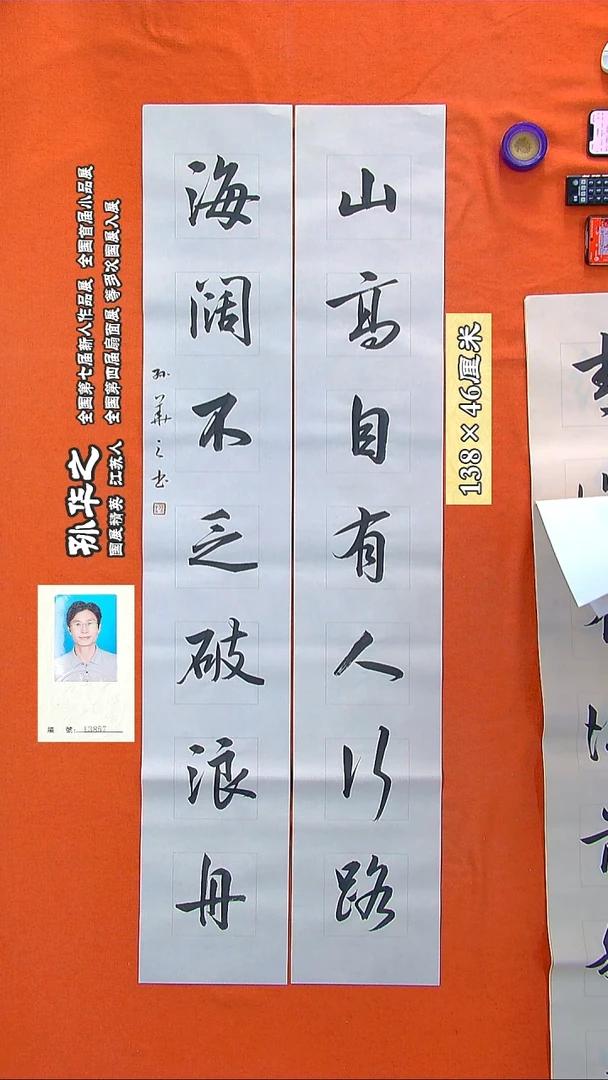 山高自有人行路
海阔不乏破浪舟
孙华之书
138×46厘米
孙华之
国展精英 江苏人
全国第七届新人作品展 全国首届小品展
全国第四届扇面展 等多次国展入展
编 號: 13857